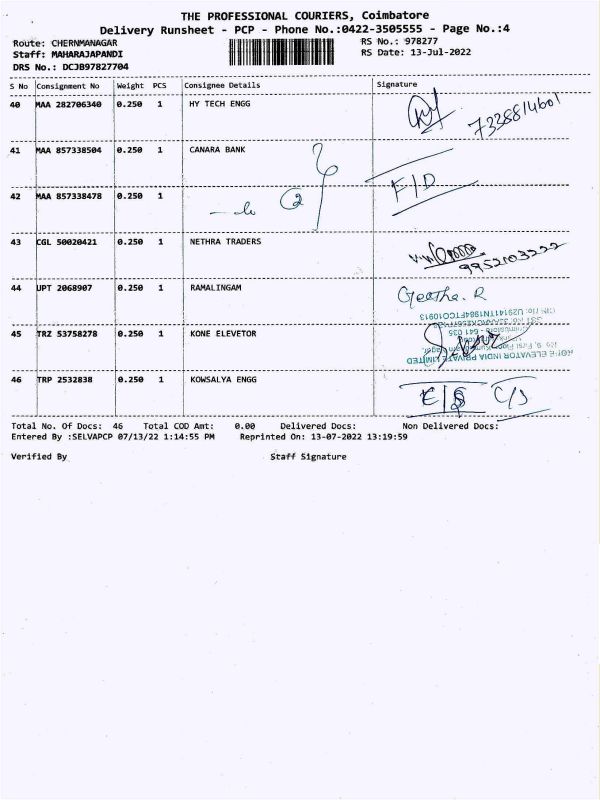 THE PROFESSIONAL COURIERS, Coimbatore
Delivery Runsheet - PCP - Phone No.:0422-3505555 - Page No.:4
Route: CHERNMANAGAR RS No.: 978277
Staff: MAHARAJAPANDI RS Date: 13-Jul-2022
DRS No.: DCJB97827704
S No Consignment No Weight PCS Consignee Details Signature
40 MAA 282706340 0.250 1 HY TECH ENGG 7338814601
41 MAA 857338504 0.250 1 CANARA BANK
42 MAA 857338478 0.250 1 F/D
43 CGL 50020421 0.250 1 NETHRA TRADERS 9952103222
44 UPT 2068907 0.250 1 RAMALINGAM Geetha. R
45 TRZ 53758278 0.250 1 KONE ELEVETOR
KONE ELEVATOR INDIA PRIVATE LIMITED
46 TRP 2532838 0.250 1 KOWSALYA ENGG
Total No. Of Docs: 46 Total COD Amt: 0.00 Delivered Docs: Non Delivered Docs:
Entered By :SELVAPCP 07/13/22 1:14:55 PM Reprinted On: 13-07-2022 13:19:59
Verified By Staff Signature